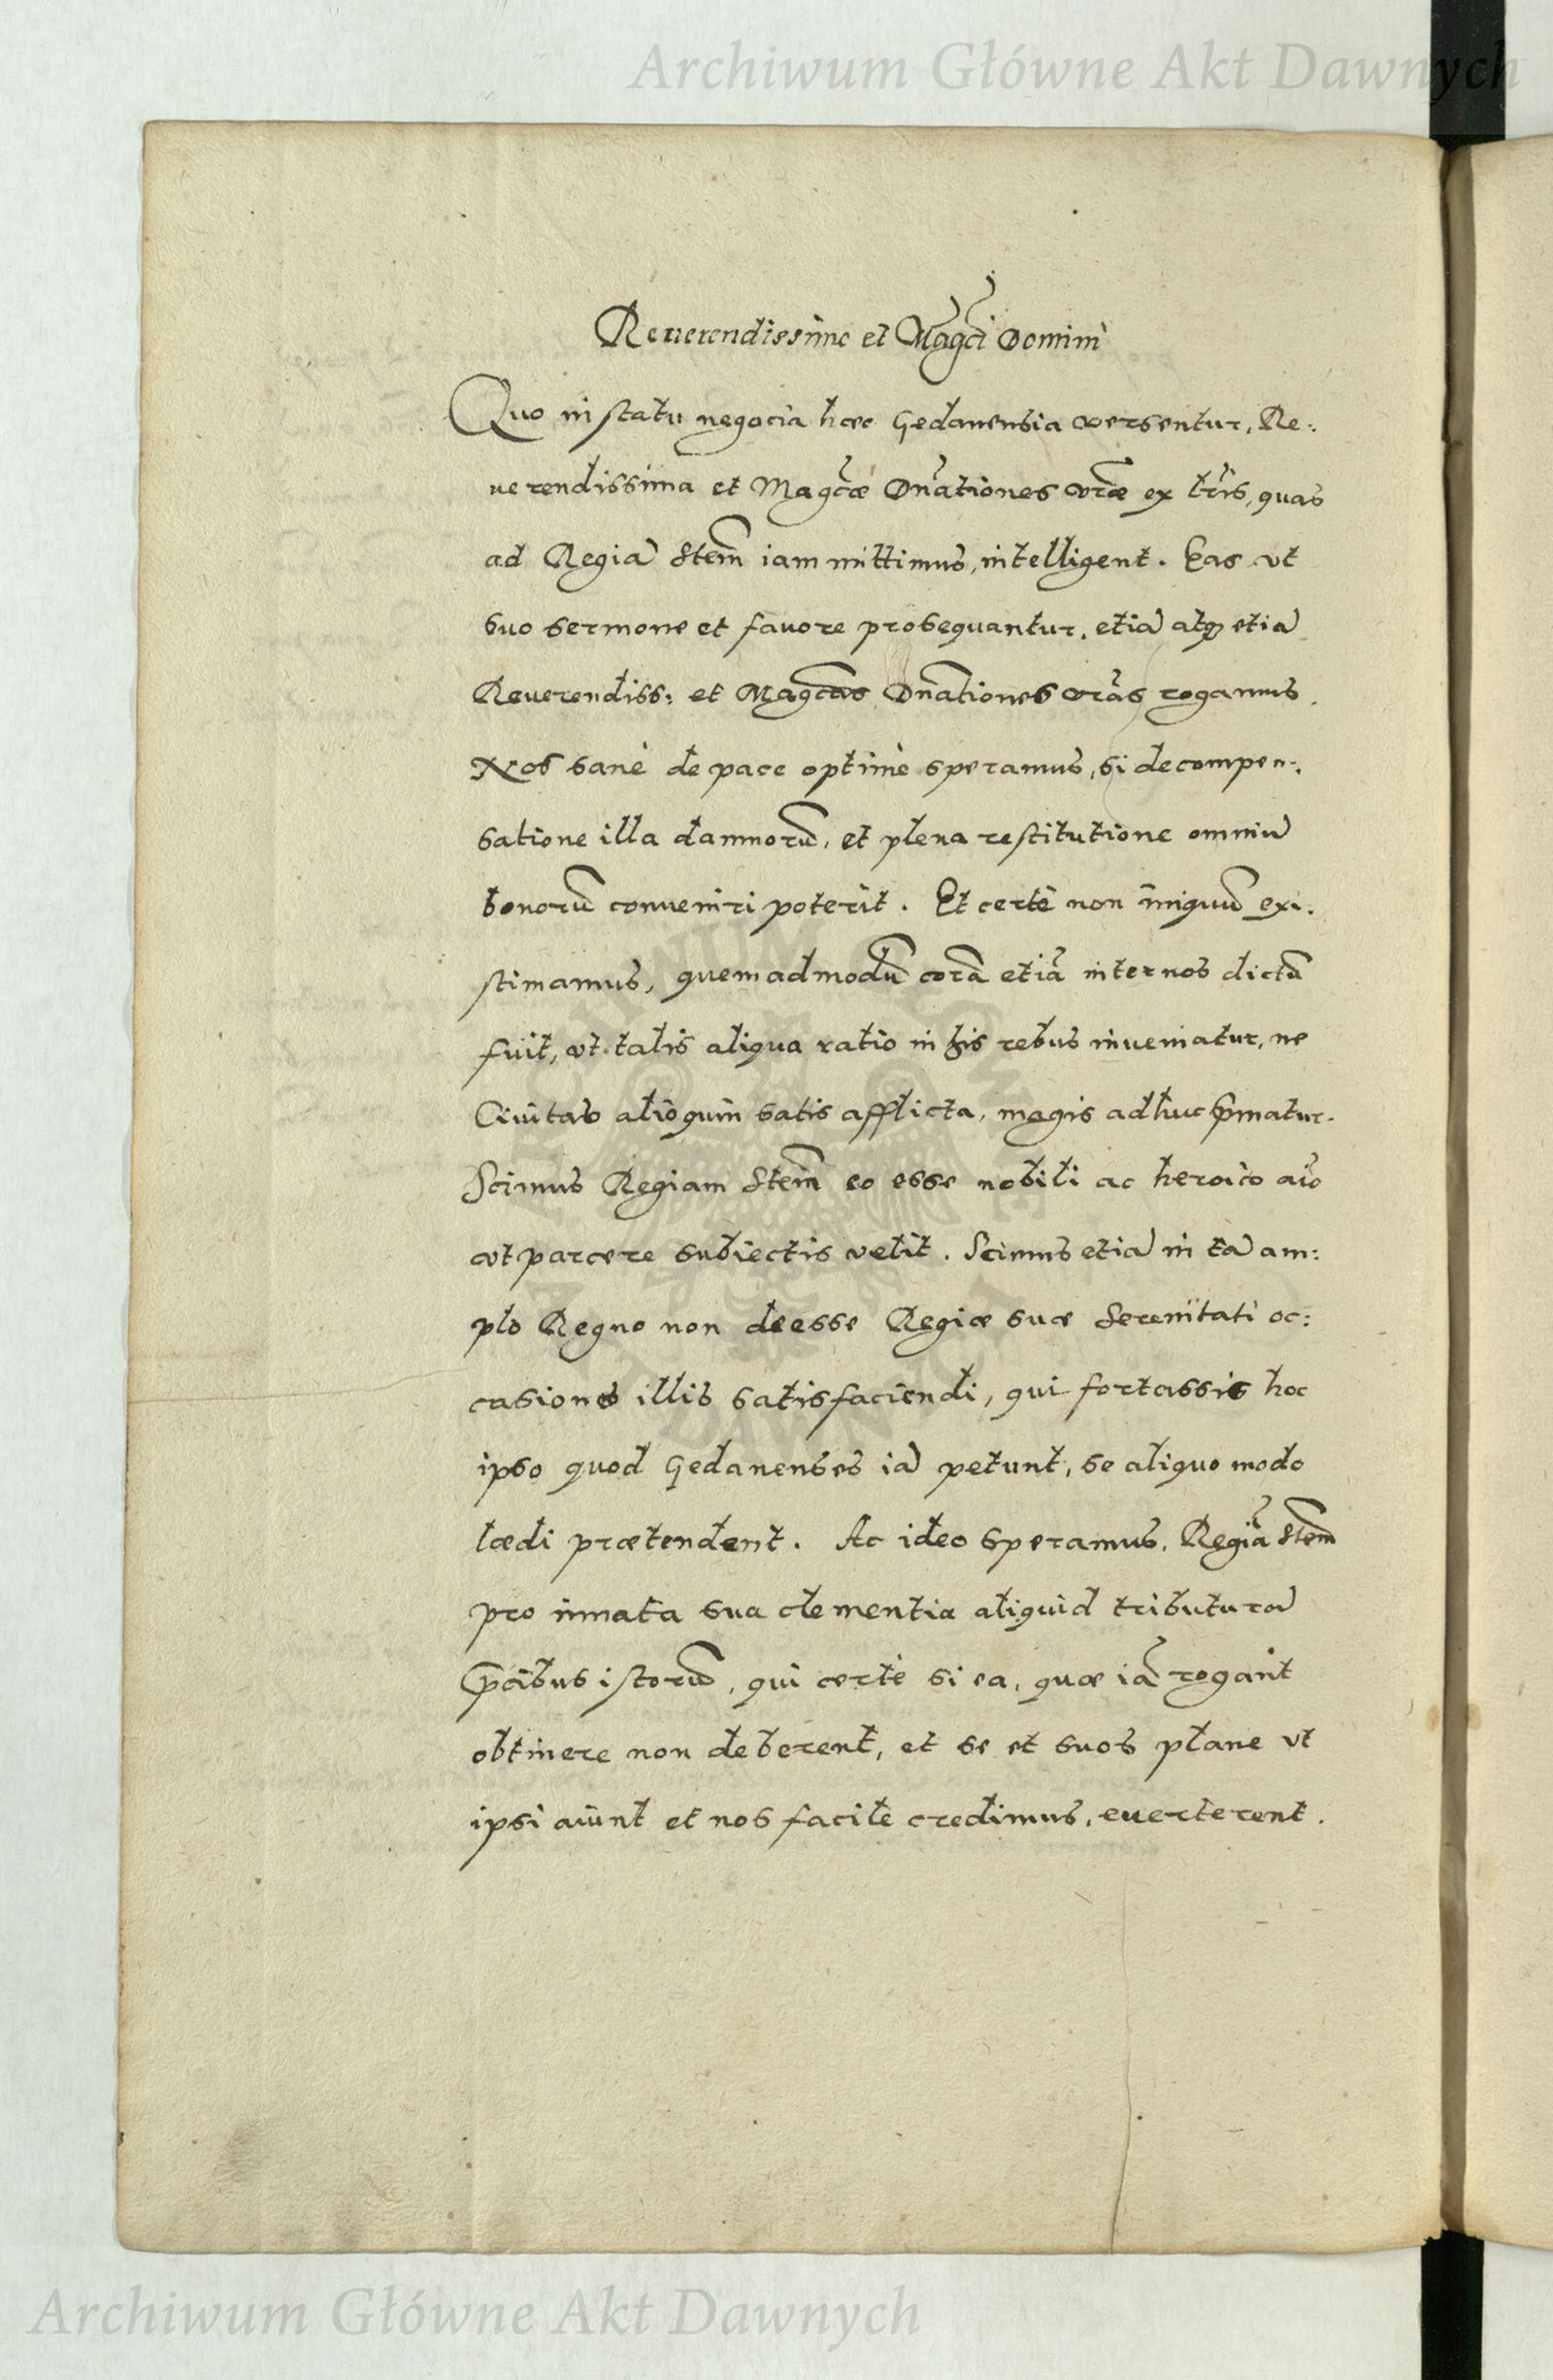 Archiwum Główne Akt Dawnych
Reuerendissime et Magc̃i Domini
Quo in statu negocia hæc Gedanensia versentur, Re:
uerendissima et Magc̃æ Dñationes vr̃æ ex lr̃is, quas
ad Regiã Stem̃ iam mittimus, intelligent. Eas vt
suo sermone et fauore prosequantur, etiã atq₃ etiã
Reuerendiss: et Magcãs Dñationes vrãs rogamus.
Nos sanè de pace optimè speramus, si de compen:
satione illa damnorũ, et plena restitutione omniũ
bonorũ conueniri poterit. Et certè non iniquũ exi:
stimamus, quemadmodũ corã etiã inter nos dictũ
fuit, vt talis aliqua ratio in his rebus inueniatur, ne
Ciuitas alioquin satis afflicta, magis adhuc p̃matur.
Scimus Regiam Stem̃ eo esse nobili ac heroico aĩo
vt parcere subiectis velit. Scimus etiã in tã am:
plo Regno non deesse Regiæ suæ Serenitati oc:
casiones illis satisfaciendi, qui fortassis hoc
ipso quod Gedanenses iã petunt, se aliquo modo
lædi prætendent. Ac ideo speramus, Regiã Stem̃
pro innata sua clementia aliquid tributurã
p̃cibus istorũ, qui certè si ea, quæ iã rogant
obtinere non deberent, et se et suos plane vt
ipsi aiunt et nos facilè credimus, euerterent.
Archiwum Główne Akt Dawnych